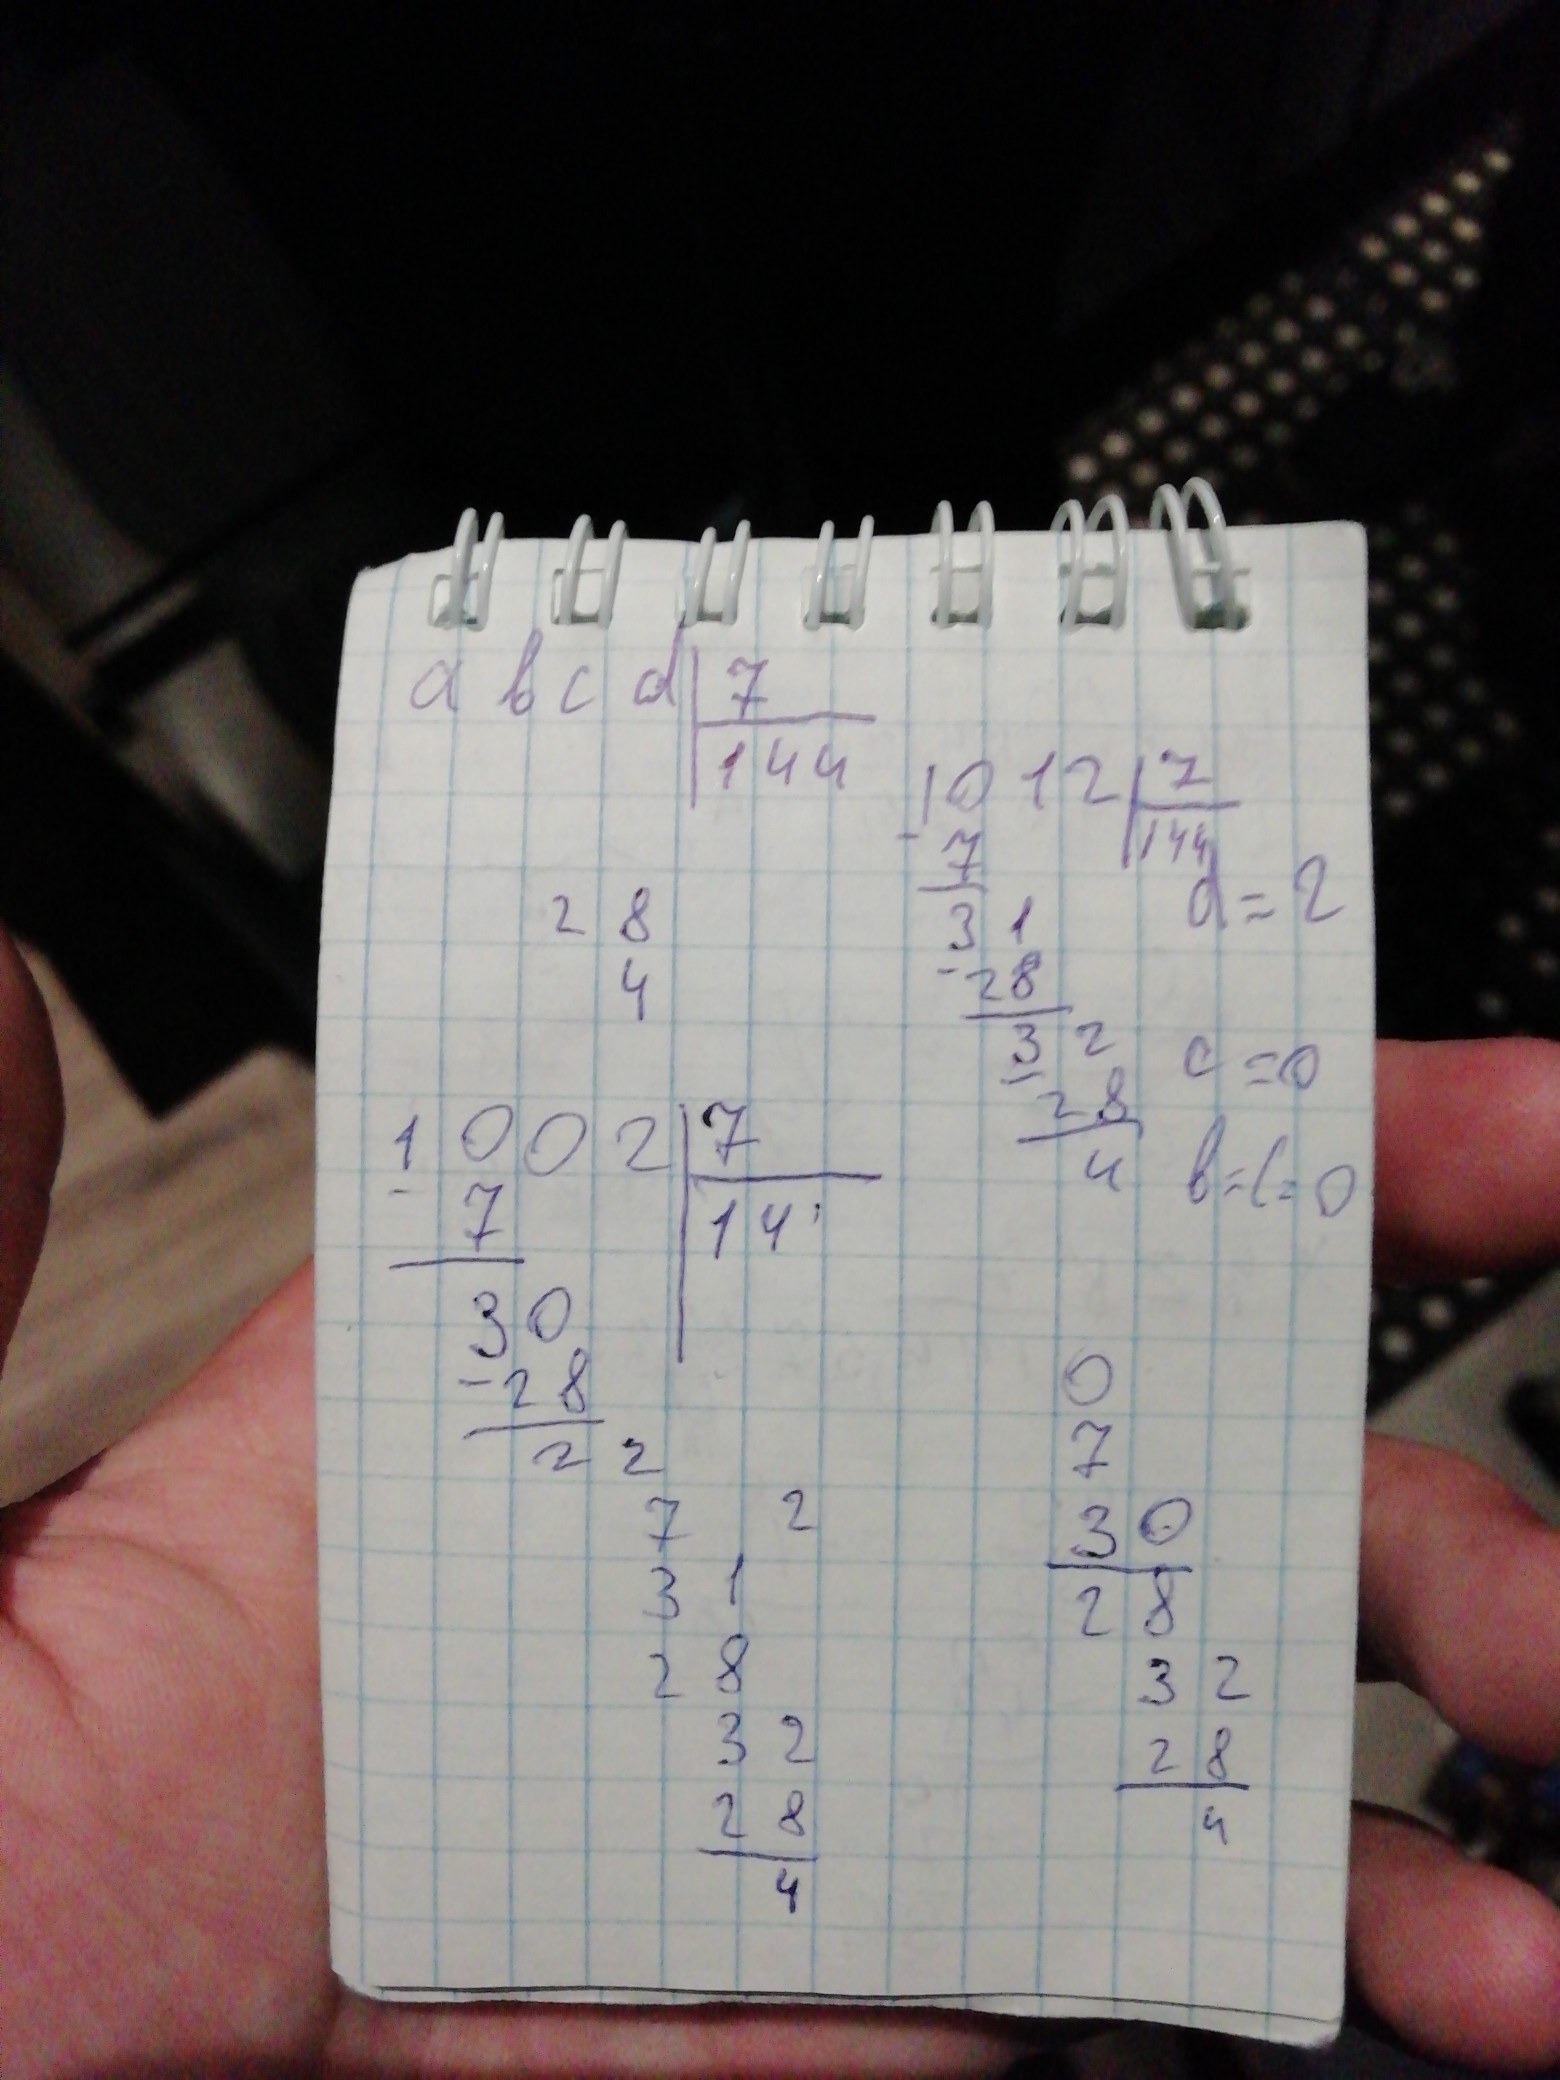 a b c d 7
144
1012 7
- 7 144
d = 2
2 8
3 1
4
- 28
3 2
c = 0
- 28
4
b = c = 0
1 0 0 2 7
- 7 14
3 0
- 2 8
2 2
7 2
3 1
2 8
3 2
2 8
4
0
7
3 0
2 8
3 2
2 8
4